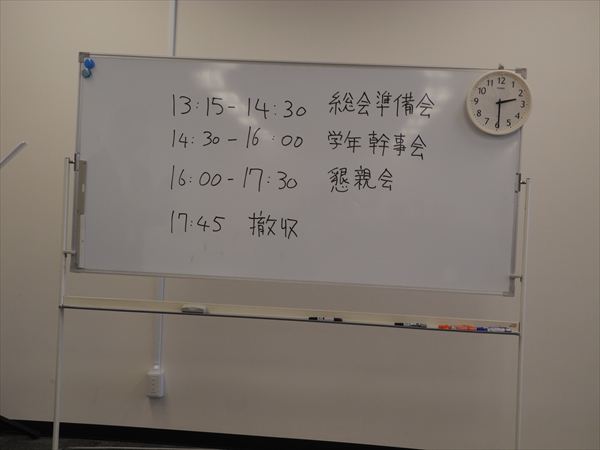 13:15-14:30 総会準備会
14:30-16:00 学年幹事会
16:00-17:30 懇親会
17:45 撤収
12
1
2
3
4
5
6
7
8
9
10
11